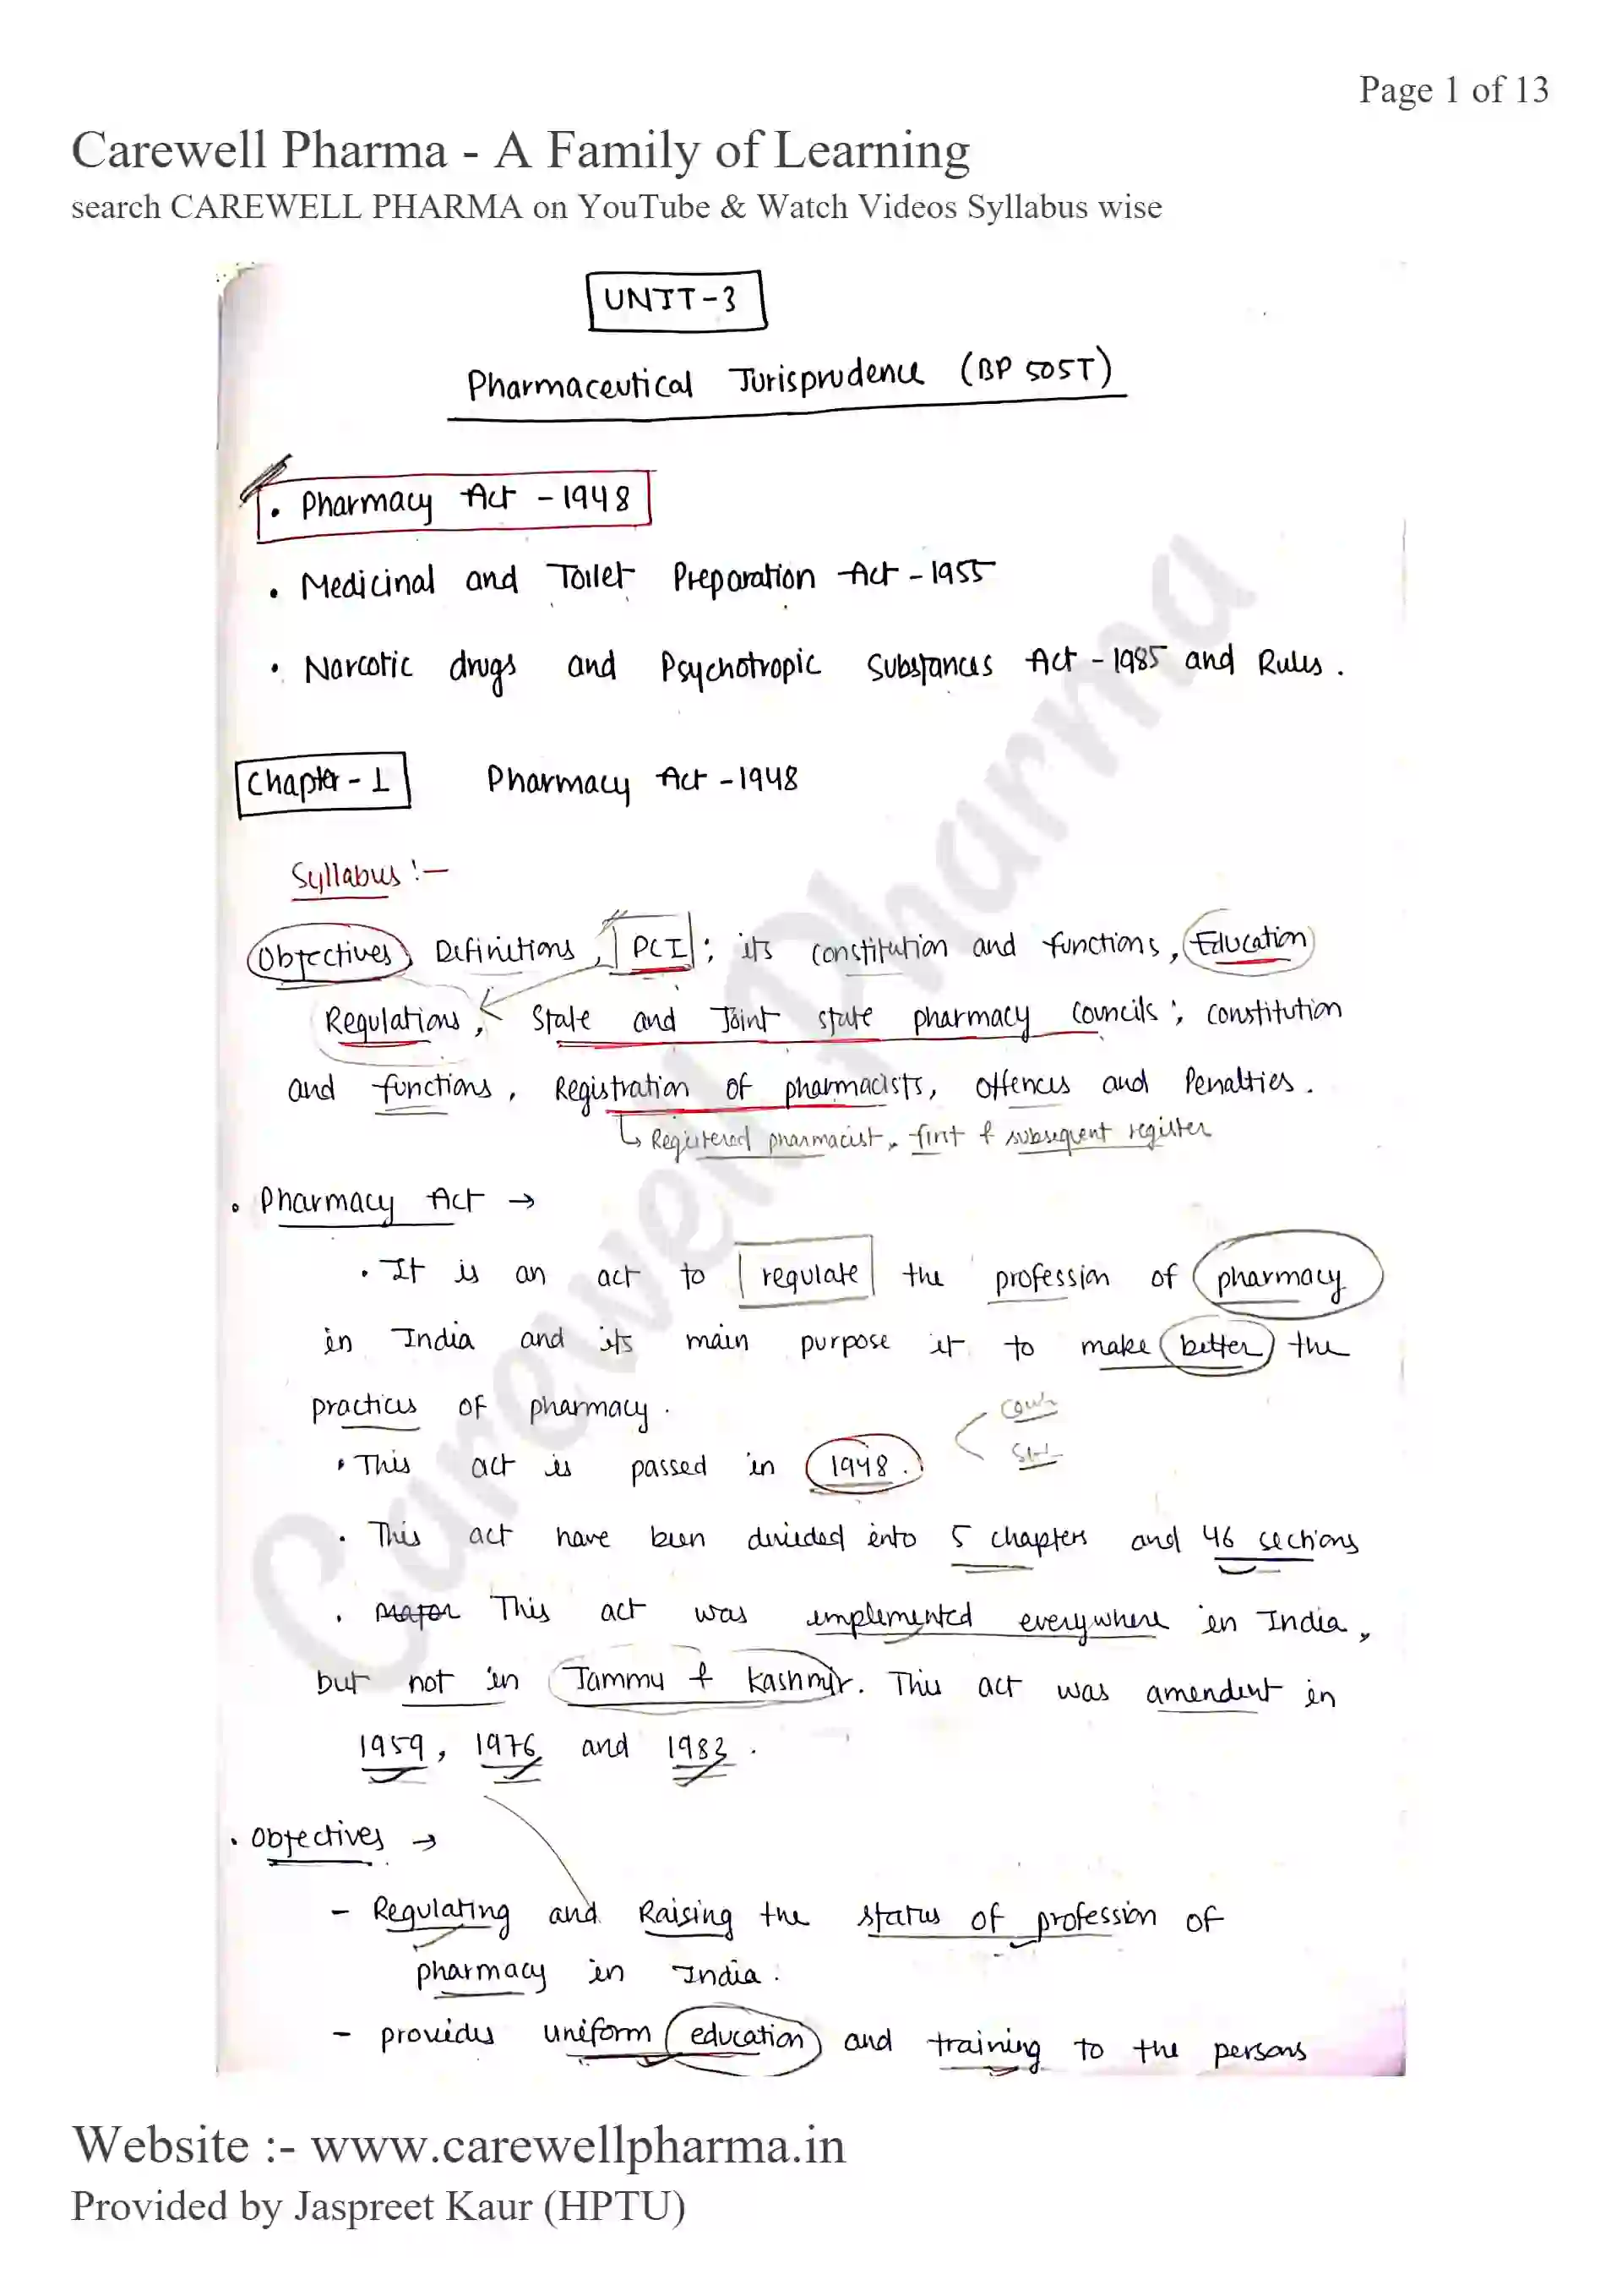 Page 1 of 13
Carewell Pharma - A Family of Learning
search CAREWELL PHARMA on YouTube & Watch Videos Syllabus wise
UNIT-3
Pharmaceutical Jurisprudence (BP 505T)
• Pharmacy Act - 1948
• Medicinal and Toilet Preparation Act - 1955
• Narcotic drugs and Psychotropic Substances Act - 1985 and Rules.
Chapter - 1 Pharmacy Act - 1948
Syllabus :-
Objectives, Definitions, PCI; its constitution and functions, Education
Regulations, State and Joint state pharmacy councils; constitution
and functions, Registration of pharmacists, Offences and Penalties.
↳ Registered pharmacist, first & subsequent register
• Pharmacy Act →
• It is an act to regulate the profession of pharmacy
in India and its main purpose it to make better the
practices of pharmacy.
• This act is passed in 1948.
• This act have been divided into 5 chapters and 46 sections
• Major This act was implemented everywhere in India,
but not in Jammu & Kashmir. This act was amendent in
1959, 1976 and 1983.
• Objectives →
- Regulating and Raising the status of profession of
pharmacy in India.
- provides uniform education and training to the persons
Carewell Pharma
Website :- www.carewellpharma.in
Provided by Jaspreet Kaur (HPTU)